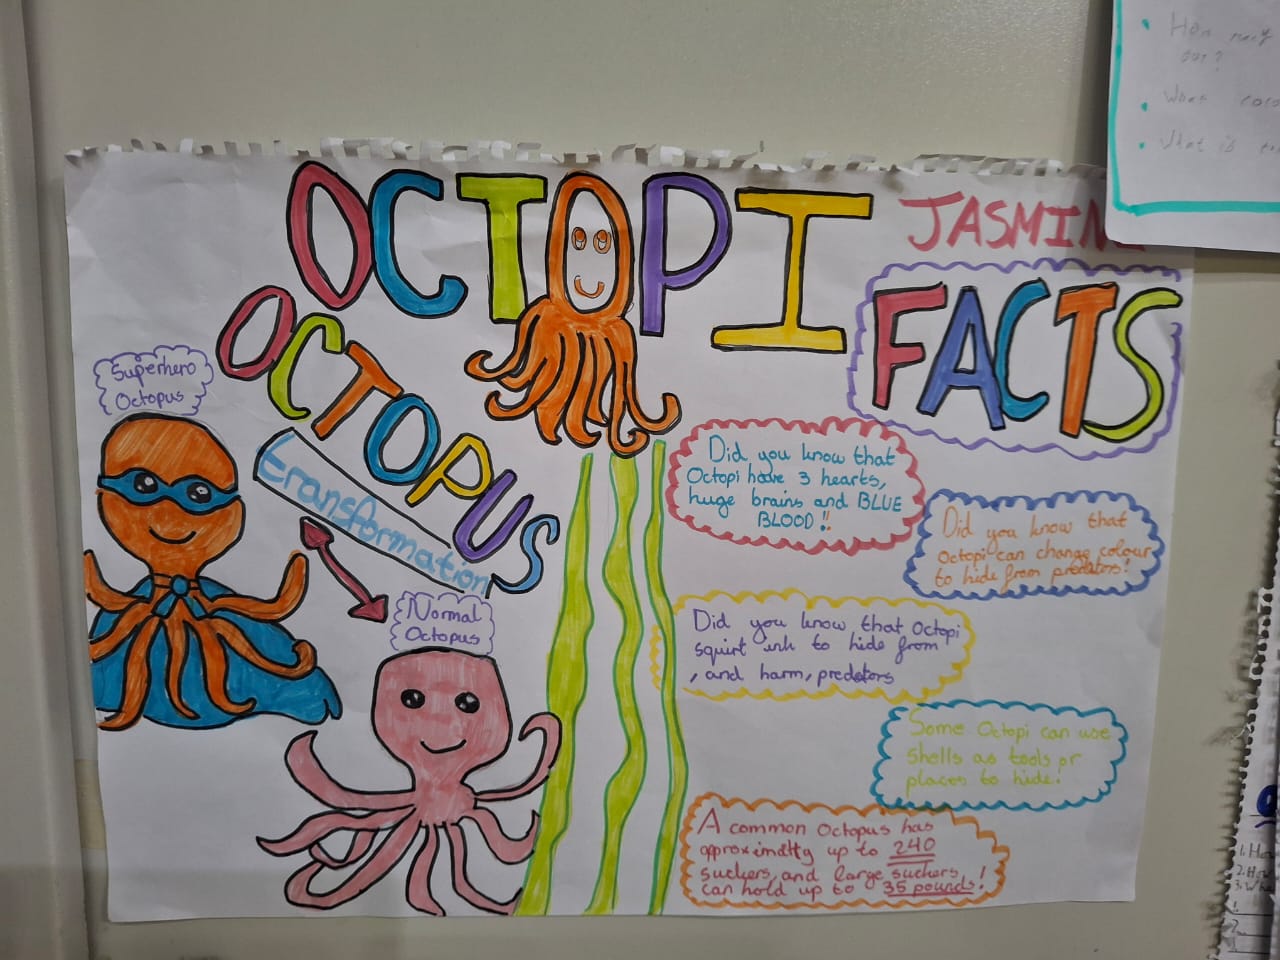 OCTOPI
JASMIN
FACTS
OCTOPUS
transformation
Superhero
Octopus
Normal
Octopus
Did you know that
Octopi have 3 hearts,
huge brains and BLUE
BLOOD!!
Did you know that
Octopi can change colour
to hide from predators!
Did you know that Octopi
squirt ink to hide from
, and harm, predators
Some Octopi can use
shells as tools or
places to hide!
A common Octopus has
approximatly up to 240
suckers, and large suckers
can hold up to 35 pounds!
How
out?
What
What is